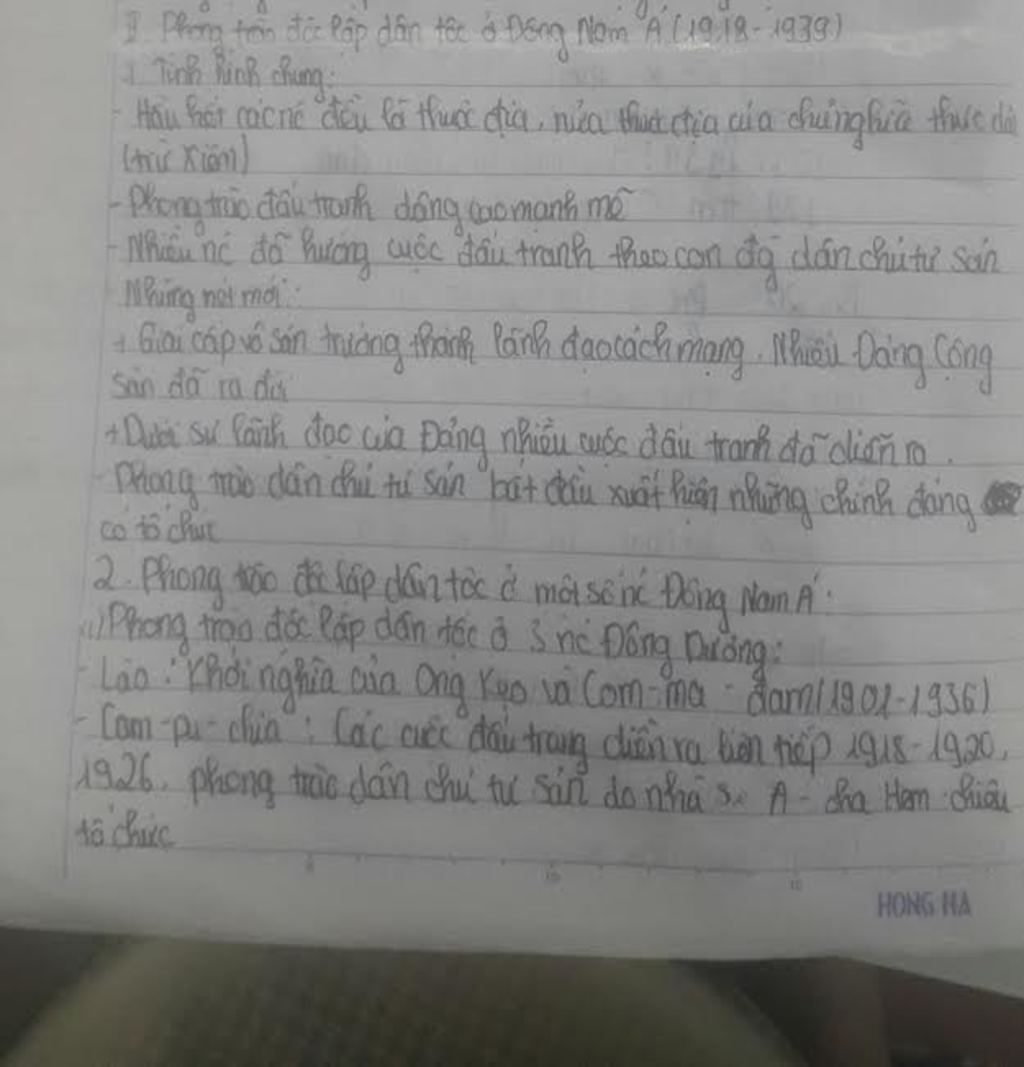 II. Phong trào độc lập dân tộc ở Đông Nam Á (1918-1939)
1. Tình hình chung:
- Hầu hết các nc đều là thuộc địa, nửa thuộc địa của chủ nghĩa thực dân
(trừ Xiêm)
- Phong trào đấu tranh dâng cao mạnh mẽ
- Nhiều nc đã hướng cuộc đấu tranh theo con đg dân chủ tư sản
- Những nét mới:
+ Giai cấp vô sản trưởng thành lãnh đạo cách mạng. Nhiều Đảng Cộng
sản đã ra đời
+ Dưới sự lãnh đạo của Đảng nhiều cuộc đấu tranh đã diễn ra.
- Phong trào dân chủ tư sản bắt đầu xuất hiện những chính đảng
có tổ chức
2. Phong trào độc lập dân tộc ở một số nc Đông Nam Á:
Phong trào độc lập dân tộc ở 3 nc Đông Dương:
- Lào: Khởi nghĩa của Ong Kẹo và Com-ma-đam (1901-1936)
- Cam-pu-chia: Các cuộc đấu trang diễn ra liên tiếp 1918-1920,
1926. phong trào dân chủ tư sản do nhà sư A-cha Hem-chiêu
tổ chức
5
10
HONG HA